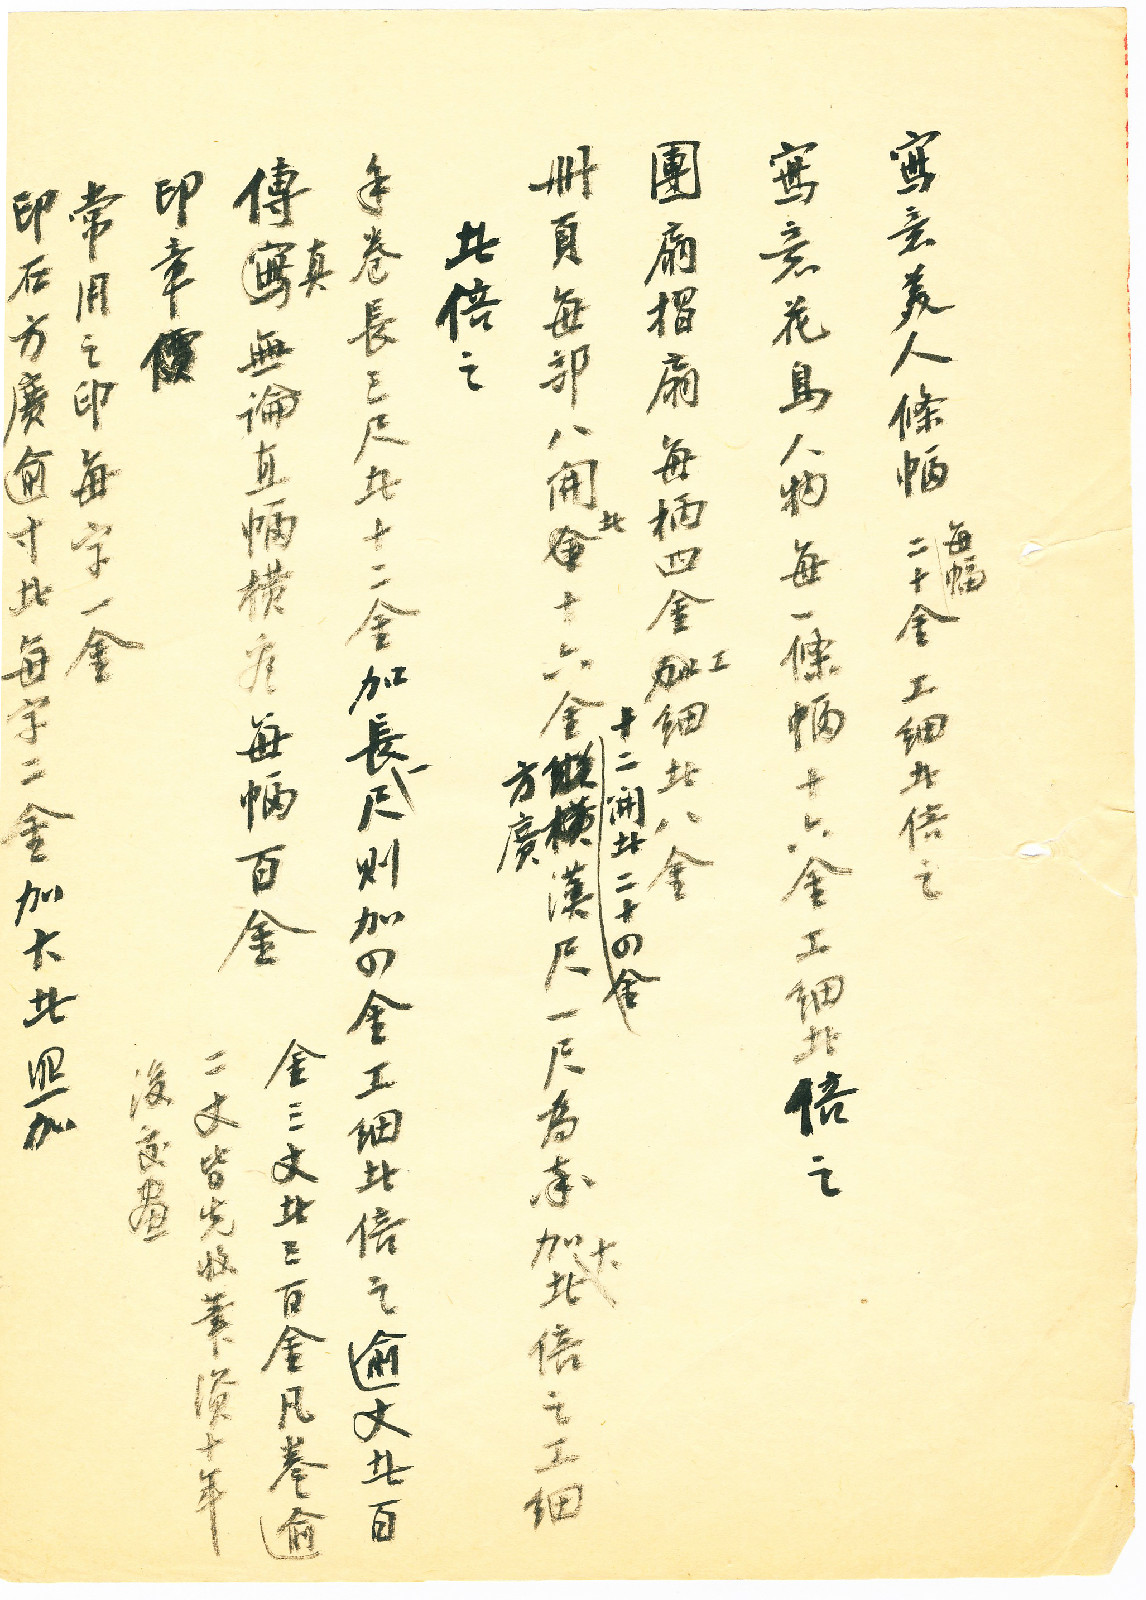 寫意美人條幅每幅二十金工細者倍之
寫意花鳥人物每一條幅十六金工細者倍之
團扇摺扇每柄四金工細者八金
十二開者二十四金
冊頁每部八開者十六金縱橫漢尺一尺為率加大者倍之工細
方廣
者倍之
手卷長三尺者十二金加長一尺則加四金工細者倍之逾丈者百
金三丈者三百金凡卷逾
二丈皆先收筆資十年
後交畫
傳真無論直幅橫卷每幅百金
印章價
常用之印每字一金
印石方廣逾寸者每字二金加大者照加